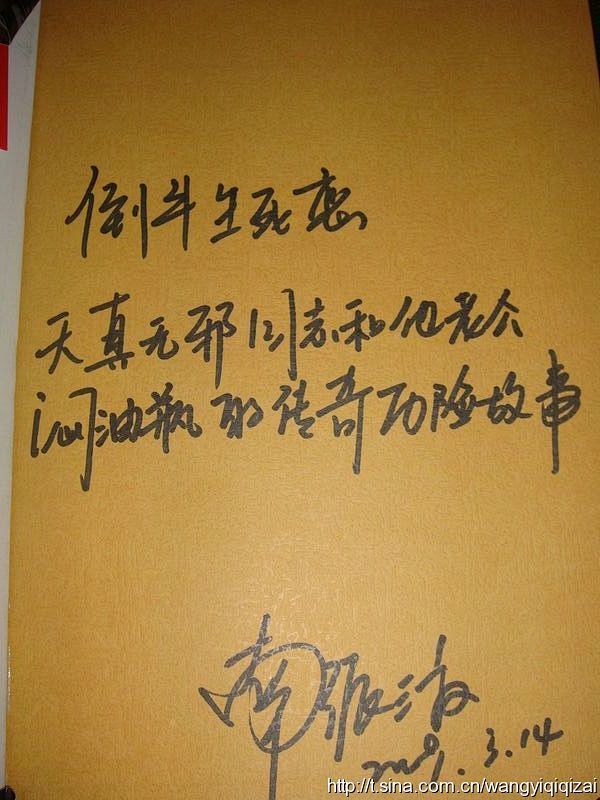 倒斗生死恋
天真无邪同志和他老公
闷油瓶的传奇历险故事
南派三叔
2009.3.14
http://t.sina.com.cn/wangyiqiqizai